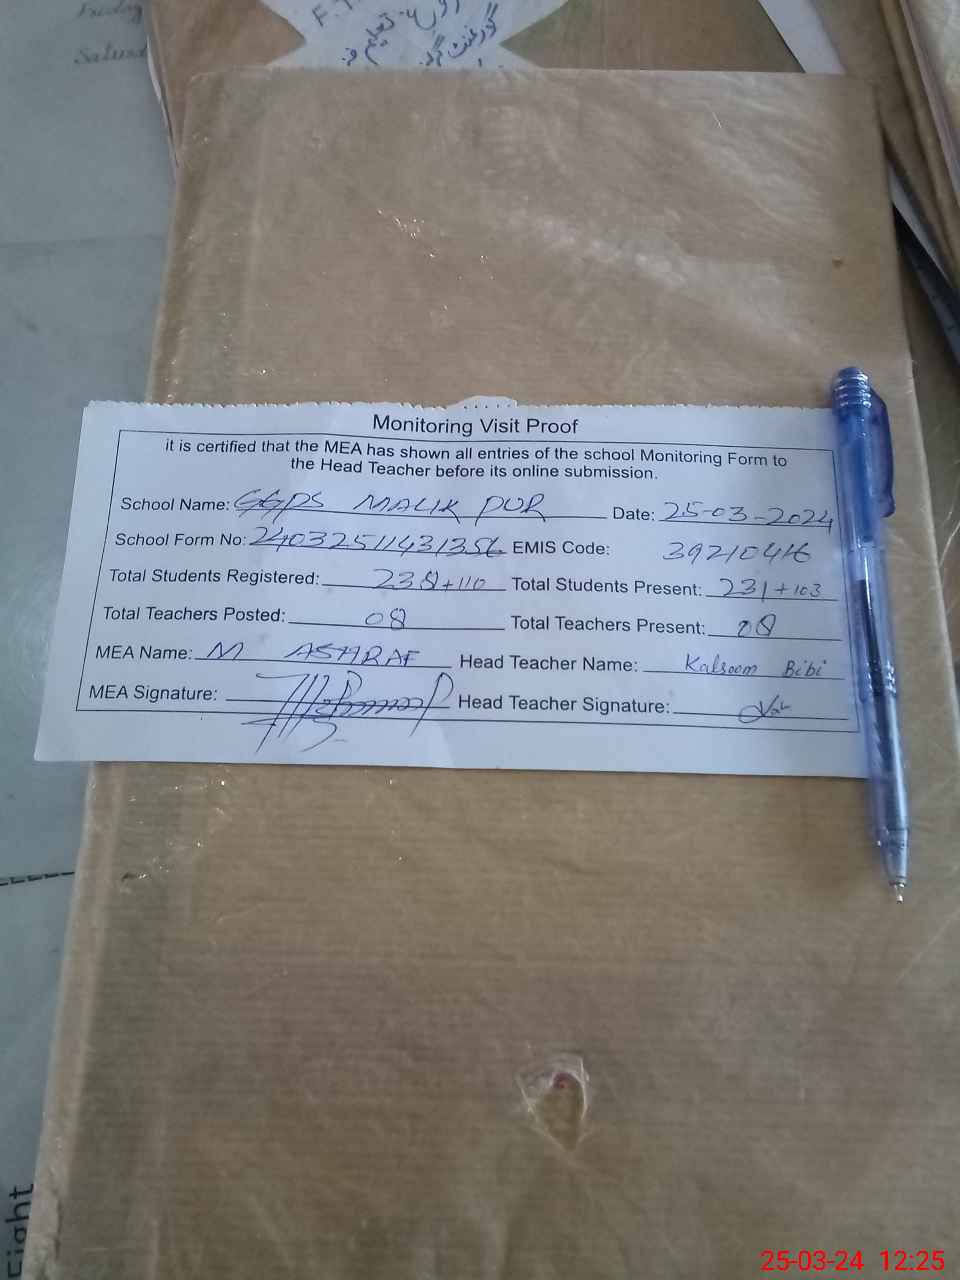 Friday
F.T
گورنمنٹ گرلز
تعلیم
Monitoring Visit Proof
it is certified that the MEA has shown all entries of the school Monitoring Form to
the Head Teacher before its online submission.
School Name: GGPS MALIK PUR Date: 25-03-2024
School Form No: 24032511431356 EMIS Code: 39210416
Total Students Registered: 238+110 Total Students Present: 231+103
Total Teachers Posted: 08 Total Teachers Present: 08
MEA Name: M ASHRAF Head Teacher Name: Kalsoom Bibi
MEA Signature: Head Teacher Signature:
Eight
25-03-24 12:25